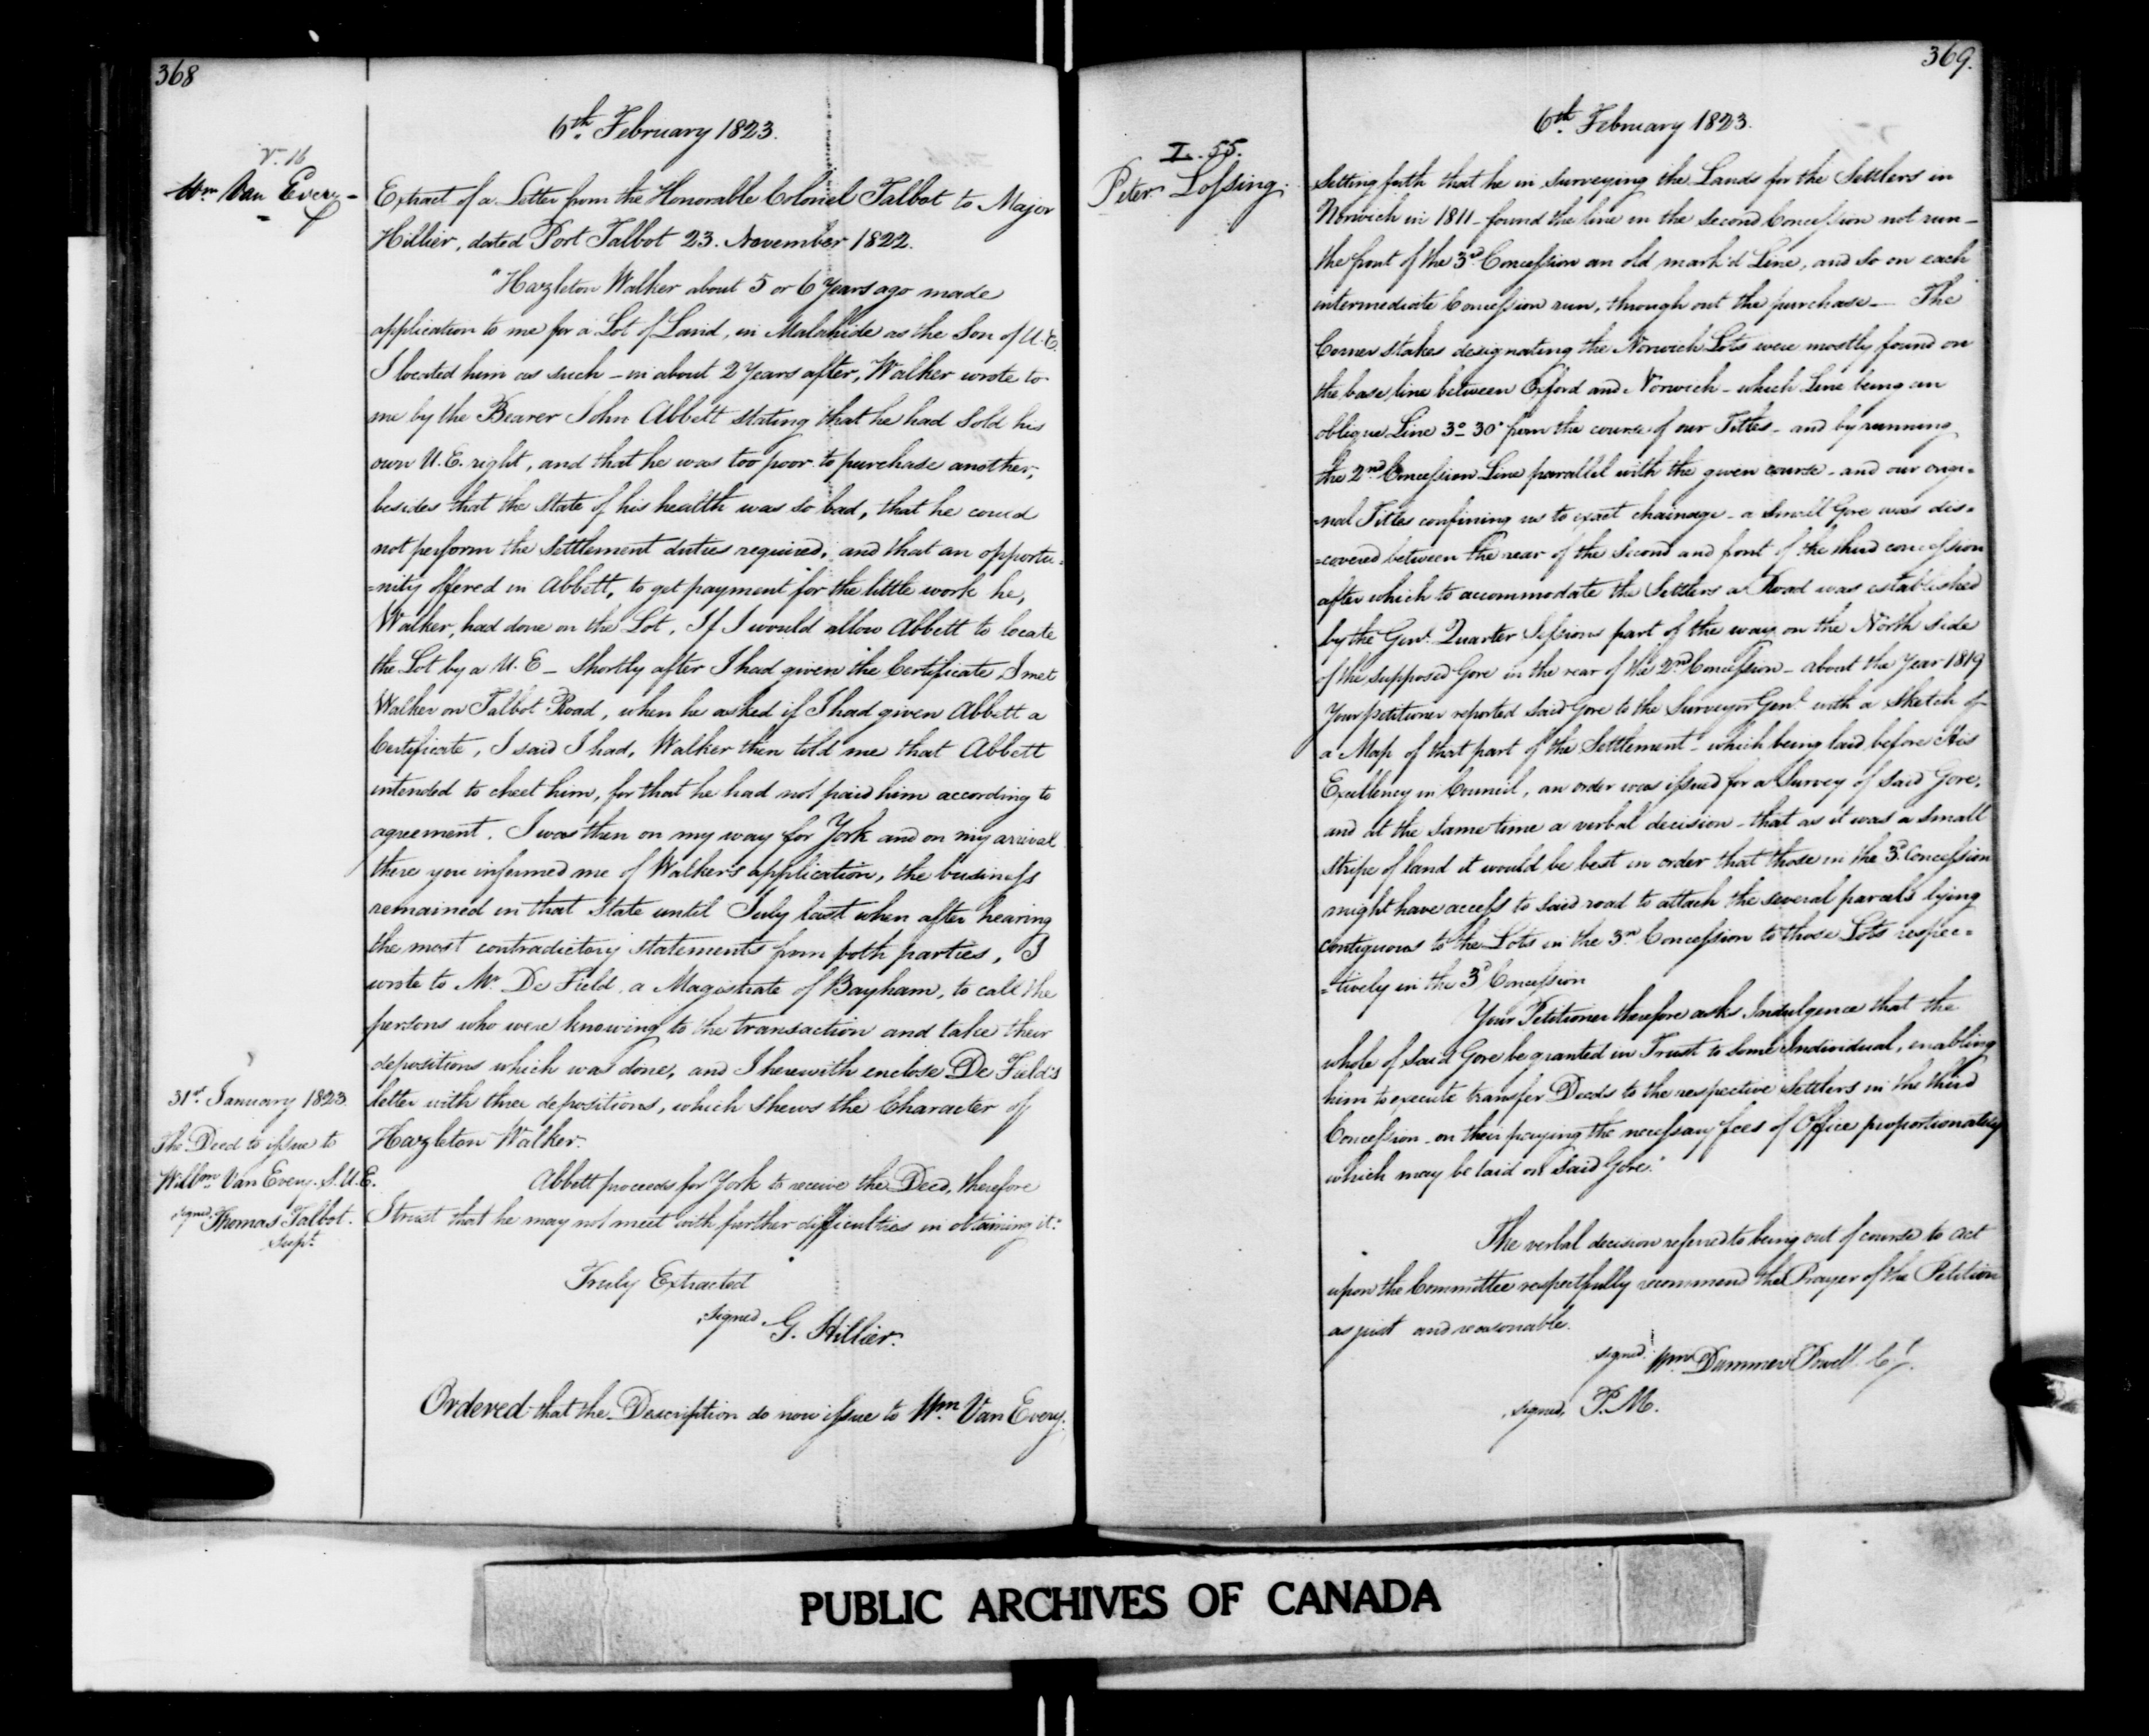 368
6th. February 1823.
V. 16
Wm Van Every
Extract of a Letter from the Honorable Colonel Talbot to Major
Hillier, dated Port Talbot 23. November 1822.
"Hazleton Walker about 5 or 6 Years ago made
application to me for a Lot of Land, in Malahide as the Son of U.E.
I located him as such - in about 2 Years after, Walker wrote to
me by the Bearer John Abbett stating that he had Sold his
own U.E. right, and that he was too poor to purchase another,
besides that the State of his health was so bad, that he could
not perform the Settlement duties required, and that an opportu=
=nity offered in Abbett, to get payment for the little work he,
Walker, had done on the Lot, If I would allow Abbett to locate
the Lot by a U.E - Shortly after I had given the Certificate I met
Walker on Talbot Road, when he asked if I had given Abbett a
Certificate, I said I had, Walker then told me that Abbett
intended to cheet him, for that he had not paid him according to
agreement. I was then on my way for York and on my arrival
there you informed me of Walker's application, the business
remained in that State until July last when after hearing
the most contradictory statements from both parties, I
wrote to Mr. De Field, a Magistrate of Bayham, to call the
persons who were knowing to the transaction and take their
depositions which was done, and I herewith enclose De Field's
letter with three depositions, which shews the Character of
Hazleton Walker.
Abbett proceeds for York to receive the Deed, therefore
I trust that he may not meet with further difficulties in obtaining it:
31st. January 1823.
The Deed to issue to
Willm Van Every. S.U.E.
signed Thomas Talbot.
Supt
Truly Extracted
signed G. Hillier.
Ordered that the Description do now issue to Wm. Van Every.
369.
6th. February 1823.
L. 55.
Peter Lossing.
Setting forth that he in surveying the Lands for the Settlers in
Norwich in 1811 - found the line in the Second Concession not run -
the front of the 3rd Concession an old mark'd Line, and so on each
intermediate Concession run, through out the purchase - The
Corner stakes designating the Norwich Lots were mostly found on
the base line between Oxford and Norwich - which Line being an
oblique Line 3° 30' from the course of our Titles - and by running
the 2nd Concession Line parallel with the given course - and our origi=
=nal Titles confining us to exact chainage - a Small Gore was dis=
=covered between the rear of the Second and front of the third concession
after which to accommodate the Settlers a Road was established
by the Genl. Quarter Sessions part of the way on the North side
of the supposed Gore in the rear of the 2nd Concession - about the Year 1819
Your petitioner reported said Gore to the Surveyor Genl with a Sketch of
a Map of that part of the Settlement - which being laid before His
Excellency in Council, an order was issued for a Survey of said Gore,
and at the same time a verbal decision - that as it was a small
stripe of land it would be best in order that those in the 3d. Concession
might have access to said road to attach the several parcels lying
contiguous to the Lots in the 3rd Concession to those Lots respec=
=tively in the 3d Concession
Your Petitioner therefore asks Indulgence that the
whole of said Gore be granted in Trust to some Individual, enabling
him to execute transfer Deeds to the respective Settlers in the third
Concession - on their paying the necessary fees of Office proportionately
which may be laid on said Gore."
The verbal decision referred to being out of course to act
upon the Committee respectfully recommend the Prayer of the Petition
as just and reasonable.
signed. Wm Dummer Powell. C.J.
signed, P.M.
PUBLIC ARCHIVES OF CANADA